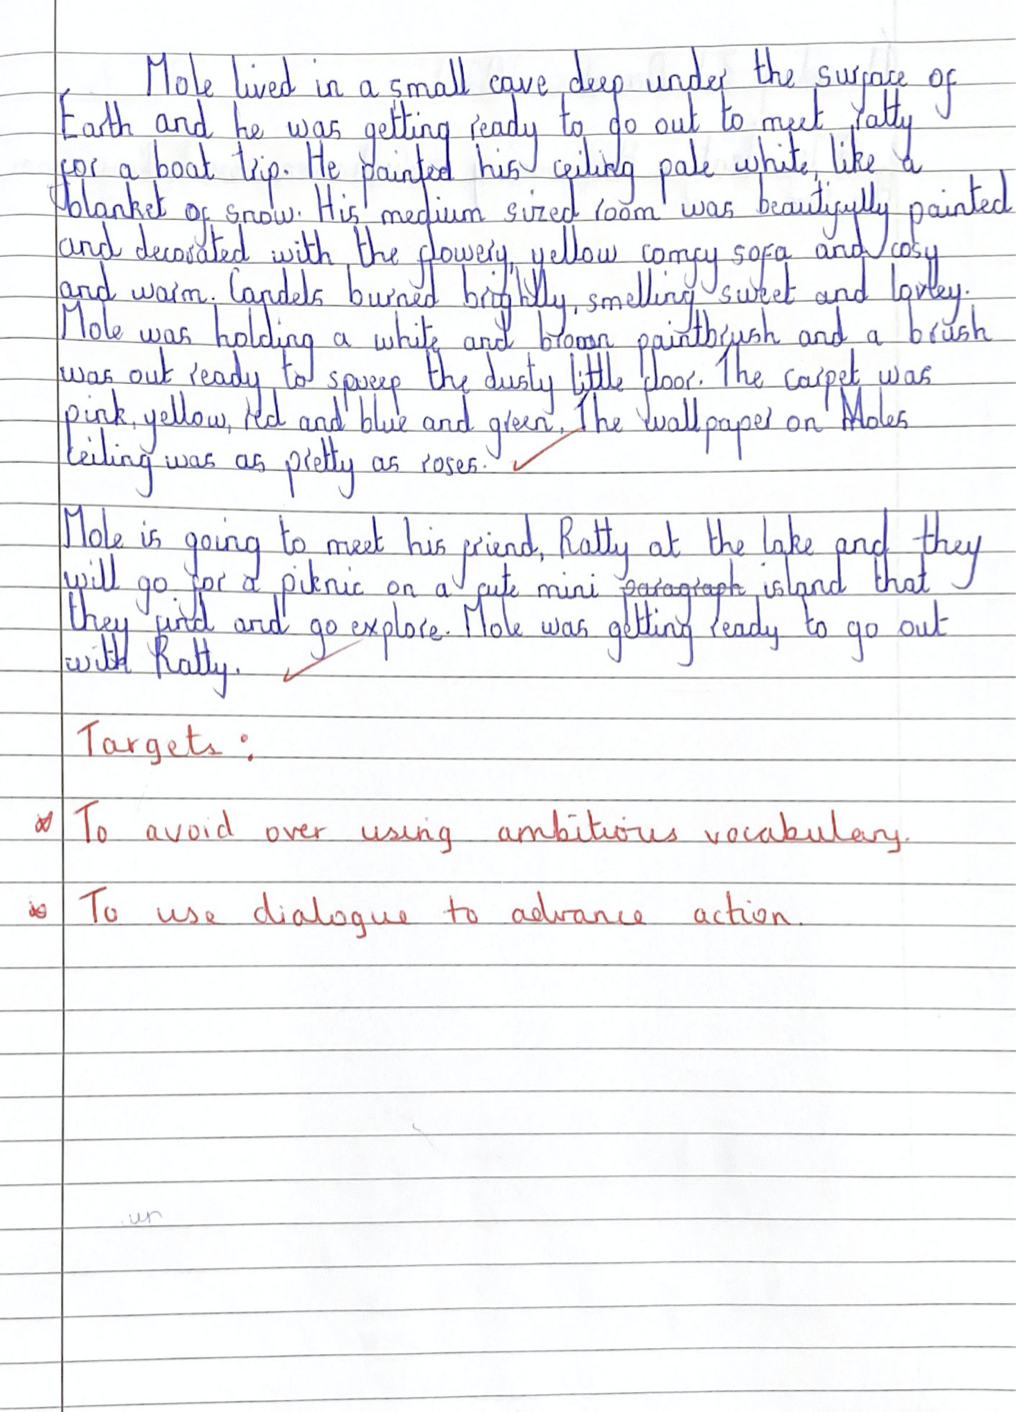 Mole lived in a small cave deep under the surface of
Earth and he was getting ready to go out to meet ratty
for a boat trip. He painted his ceiling pale white, like a
blanket of snow. His medium sized room was beautifully painted
and decorated with the flowery, yellow comfy sofa and cosy
and warm. Candels burned brightly, smelling sweet and lovley.
Mole was holding a white and brown paintbrush and a brush
was out ready to sweep the dusty little floor. The carpet was
pink, yellow, red and blue and green. The wallpaper on Moles
Ceiling was as pretty as roses.
Mole is going to meet his friend, Ratty at the lake and they
will go for a piknic on a cute mini paragraph island that
they find and go explore. Mole was getting ready to go out
with Ratty.
Targets:
To avoid over using ambitious vocabulary.
To use dialogue to advance action.
un